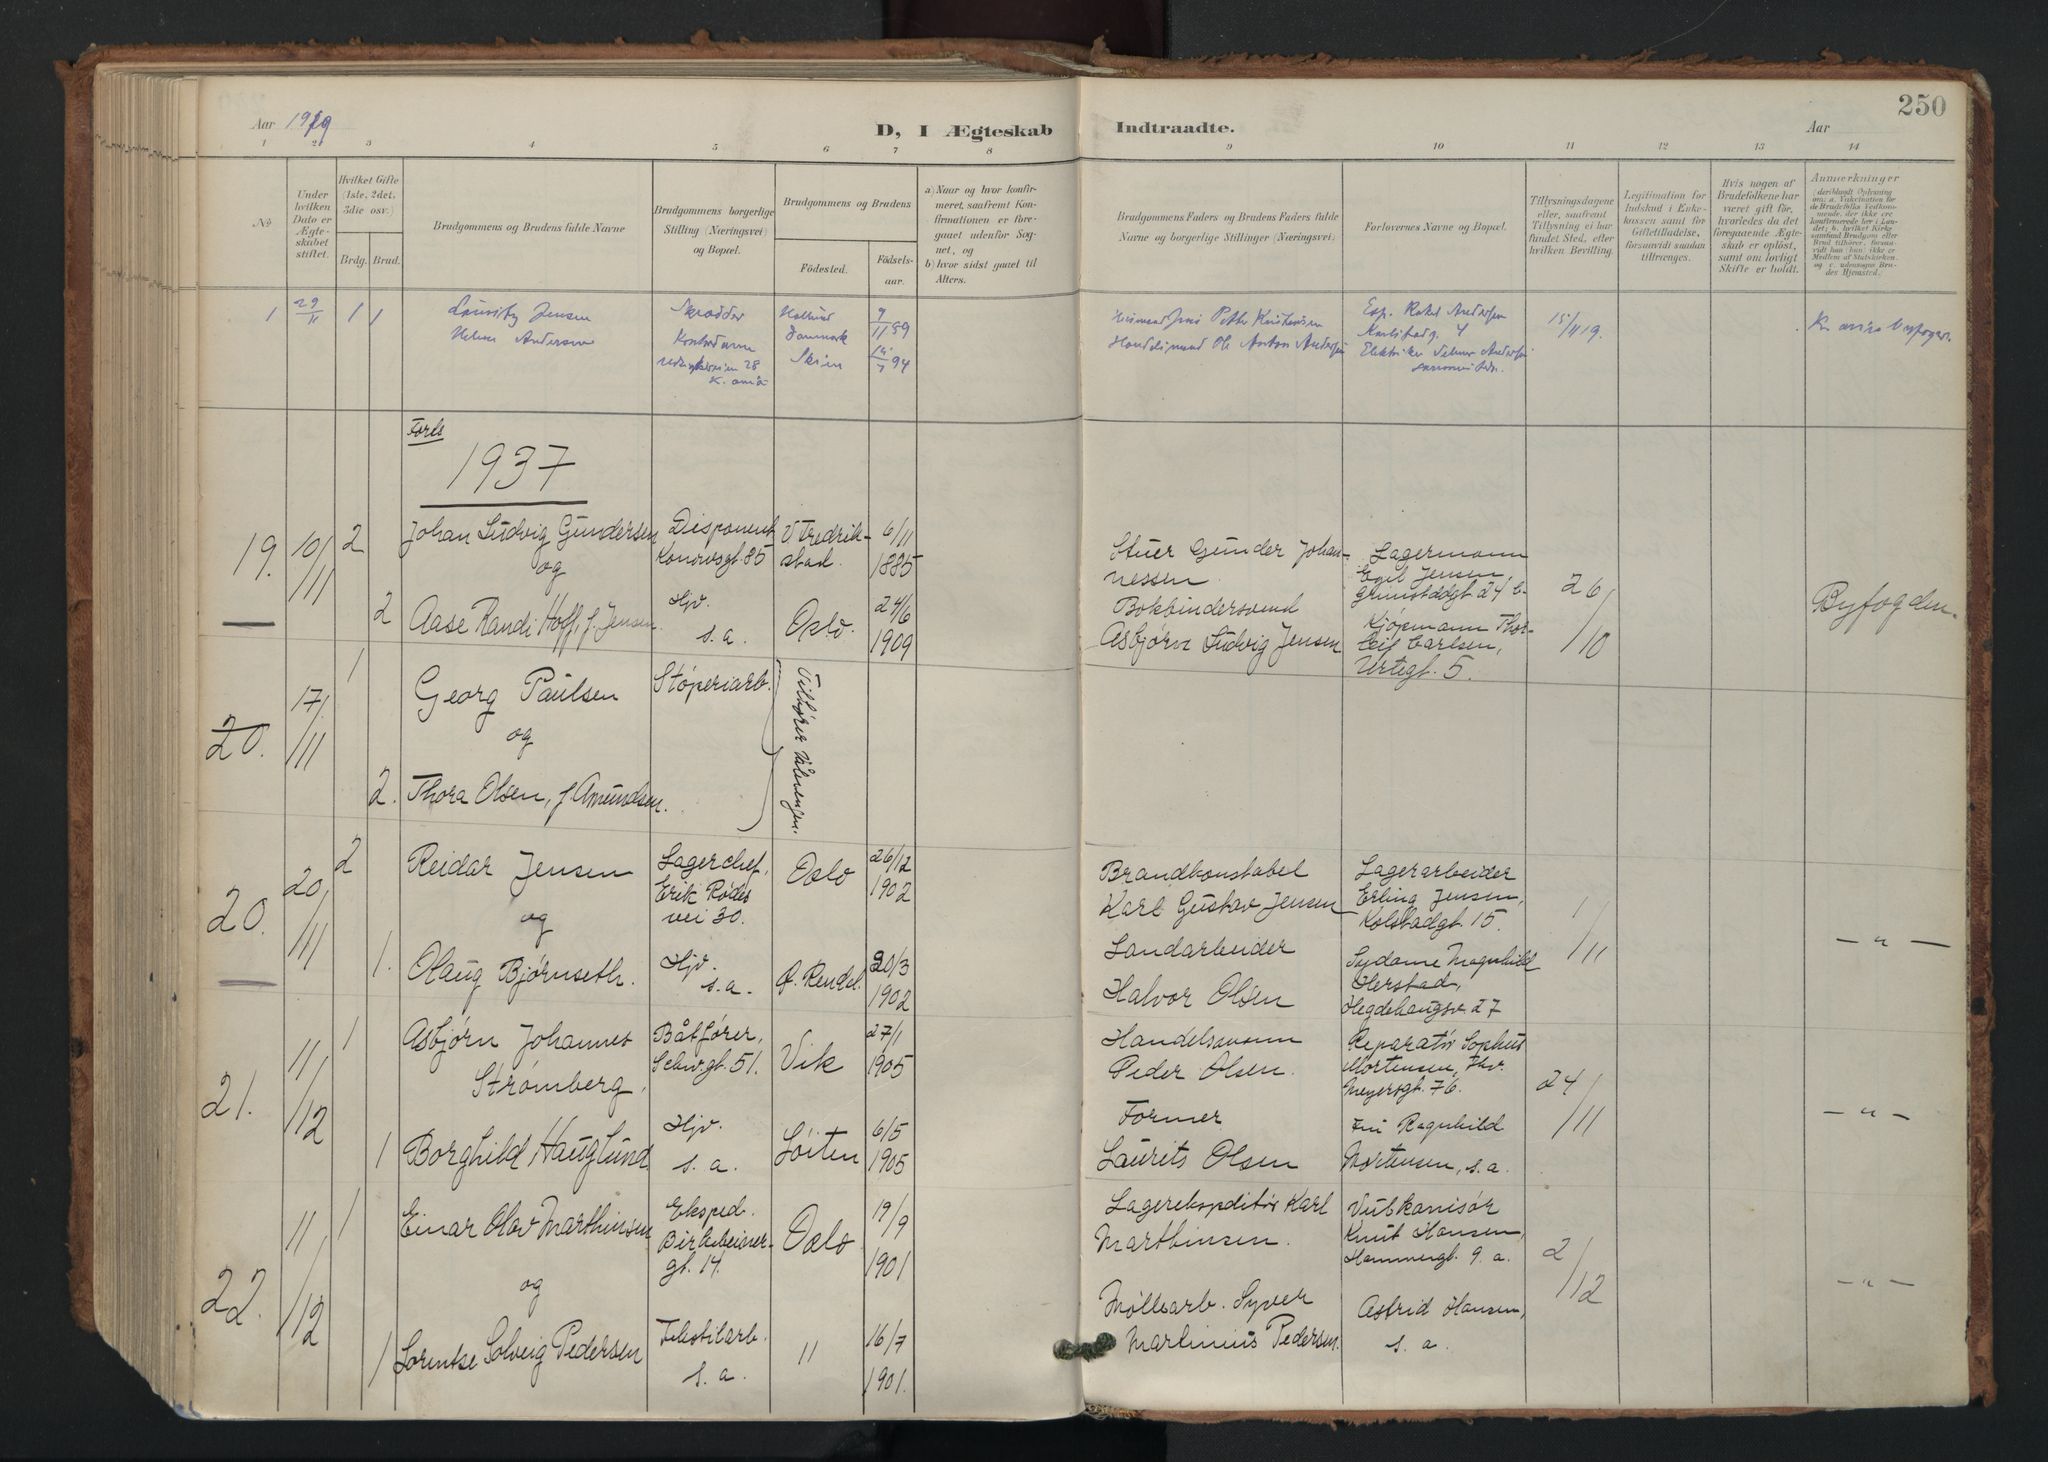 250
Aar 1919
D, I Ægteskab Indtraadte.
Aar
1 2 3 4 5 6 7 8 9 10 11 12 13 14
No
Under hvilken Dato er Ægteskabet stiftet.
Hvilket Gifte (1ste, 2det, 3die osv.)
Brdg. Brud.
Brudgommens og Brudens fulde Navne
Brudgommens borgerlige Stilling (Næringsvei) og Bopæl.
Brudgommens og Brudens
Födested.
Födselsaar.
a) Naar og hvor konfirmeret, saafremt Konfirmationen er foregaaet udenfor Sognet, og
b) hvor sidst gaaet til Alters.
Brudgommens Faders og Brudens Faders fulde Navne og borgerlige Stillinger (Næringsvei)
Forlovernes Navne og Bopæl.
Tillysningsdagene eller, saafremt Tillysning ei har fundet Sted, efter hvilken Bevilling.
Legitimation for Indskud i Enkekassen samt for Giftetilladelse, forsaavidt saadan tiltrænges.
Hvis nogen af Brudefolkene har været gift för, hvorledes da det foregaaende Ægteskab er oplöst, samt om lovligt Skifte er holdt.
Anmærkninger
1 29/11 1 1 Lauritz Jensen Skrædder Danmark 9/11 89
Skien 94
Karlstadg. 4
15/11 19
Forts
1937
19. 10/11 2 Johan Ludvig Gundersen Disponent V Fredrik- 6/11
og Konowsgt. 85 stad. 1885
2 Aase Randi Hoff, f. Jensen. Hjv. s. a. Oslo. 24/6 1909
Stuer Gunder Johan- Lagermann
nessen. Egil Jensen,
Grimstadgt. 24 b.
Bokbindersvend Kjøpmann Thor-
Asbjørn Ludvig Jensen leif Carlsen,
Urtegt. 5.
26/10
Byfogden.
20. 17/11 1 Georg Paulsen Støperiarb. Tilhører Vålerengen.
og
2. Thora Olsen, f. Amundsen.
20. 20/11 2 Reidar Jensen Lagerchef, Oslo 26/12
Erik Rødes 1902
og vei 30.
1. Olaug Bjørnseth. Hjv. s. a. Ø. Rendal. 20/3 1902
Brandkonstabel Lagerarbeider
Karl Gustav Jensen Erling Jensen,
Kolstadgt. 15.
Landarbeider Sydame Magnhild
Halvor Olsen Herstad,
Hegdehaugsv. 27
1/11
— " —
21. 11/12 1 Asbjørn Johannes Båtfører, Vik 27/1
Strømberg, Schw.gt. 51. 1905
1 Borghild Hauglund Hjv. s. a. Løiten 6/5 1905
Handelsmann Reparatør Sophus
Peder Olsen. Mortensen, Thv.
Meyersgt. 76.
Former Fru Ragnhild
Laurits Olsen Mortensen, s. a.
24/11
— " —
22. 11/12 1 Einar Olav Marthinsen Eksped. Oslo 19/9
Birkebeiner- 1901
og gt. 14.
1 Lorentse Solveig Pedersen Tekstilarb. s. a. " 16/7 1901.
Lagerekspeditør Karl Vulkanisør
Marthinsen. Knut Hansen,
Hammergt. 9 a.
Møllearb. Syver Astrid Hansen,
Martinius Pedersen. s. a.
2/12
— " —